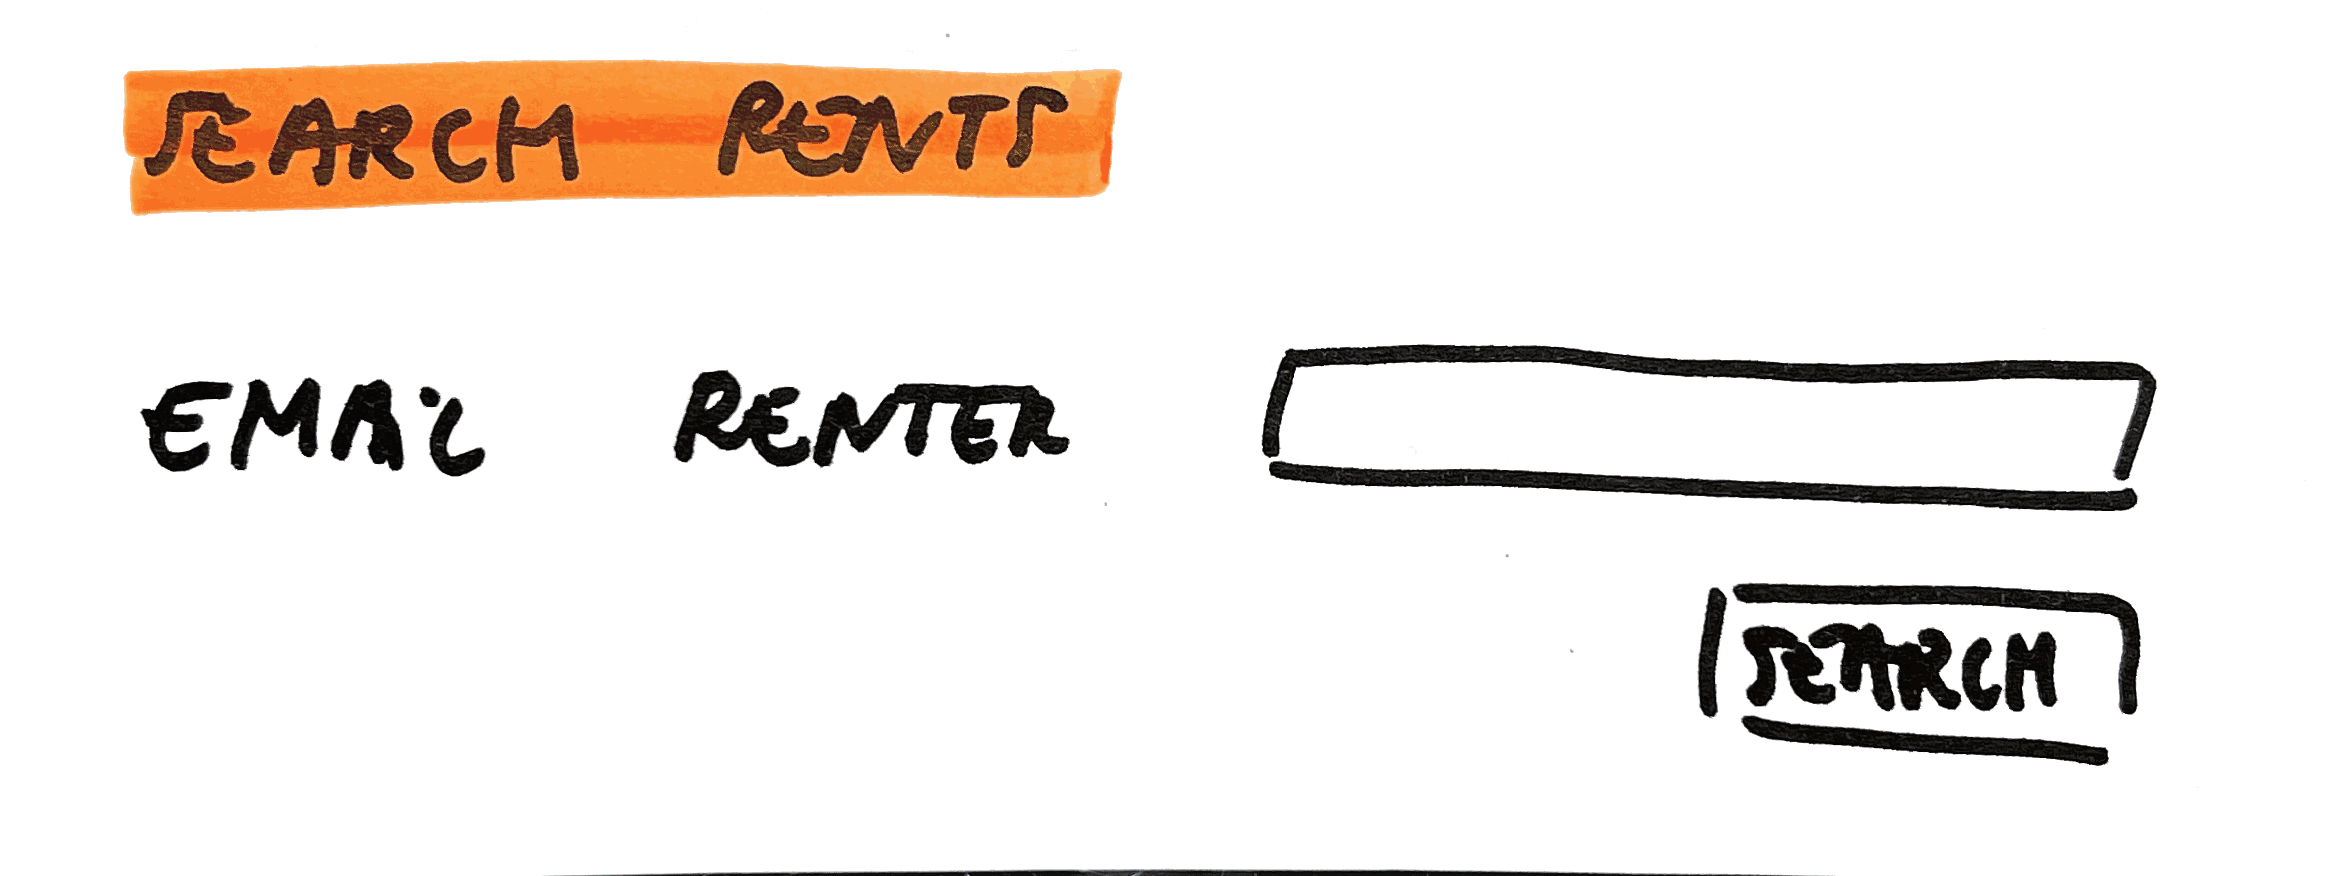 SEARCH RENTS
EMAiL RENTER
SEARCH